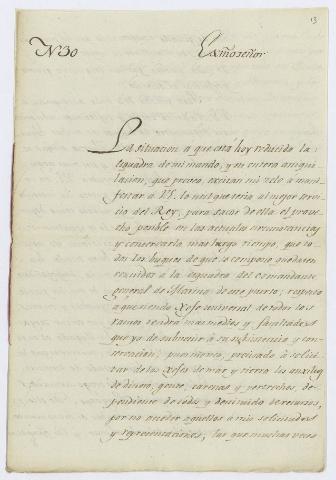 13
N 30
Exmo señor
La situacion a que está hoy reducida la
esquadra de mi mando, y su entera aniqui
lacion, que preveo, excitan mi zelo a mani
festar a VE. lo util que seria al mejor servi
cio del Rey, para sacar de ella el prove
cho posible en las actuales circunstancias
y conservarla mas largo tiempo, que to
dos los buques de que se compone quedasen
reunidos a la esquadra del comandante
general de Marina de este puerto, respecto
a que siendo Xefe universal de todos los
ramos tendrá mas medios y facultades
que yo de subvenir a su subsistencia y con
servacion; pues mero, precisado a solici
tar de los Xefes de mar y tierra los auxilios
de dinero, gente, carenas y pertrechos, de
pendiente de todos y destituido de recursos,
por no quedar aquellos a mis solicitudes
y representaciones, las que muchas veces